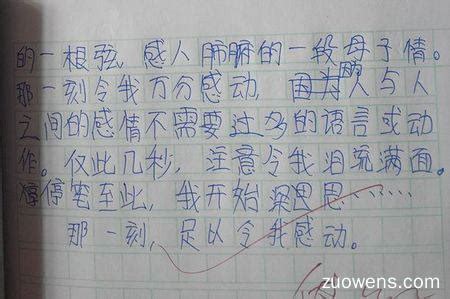 的一根弦，感人肺腑的一段母子情。
那一刻令我万分感动，因为人与人
之间的感情不需要过多的语言或动
作。仅此几秒，注意令我泪流满面。
停笔至此，我开始深思……
那一刻，足以令我感动。
zuowens.com